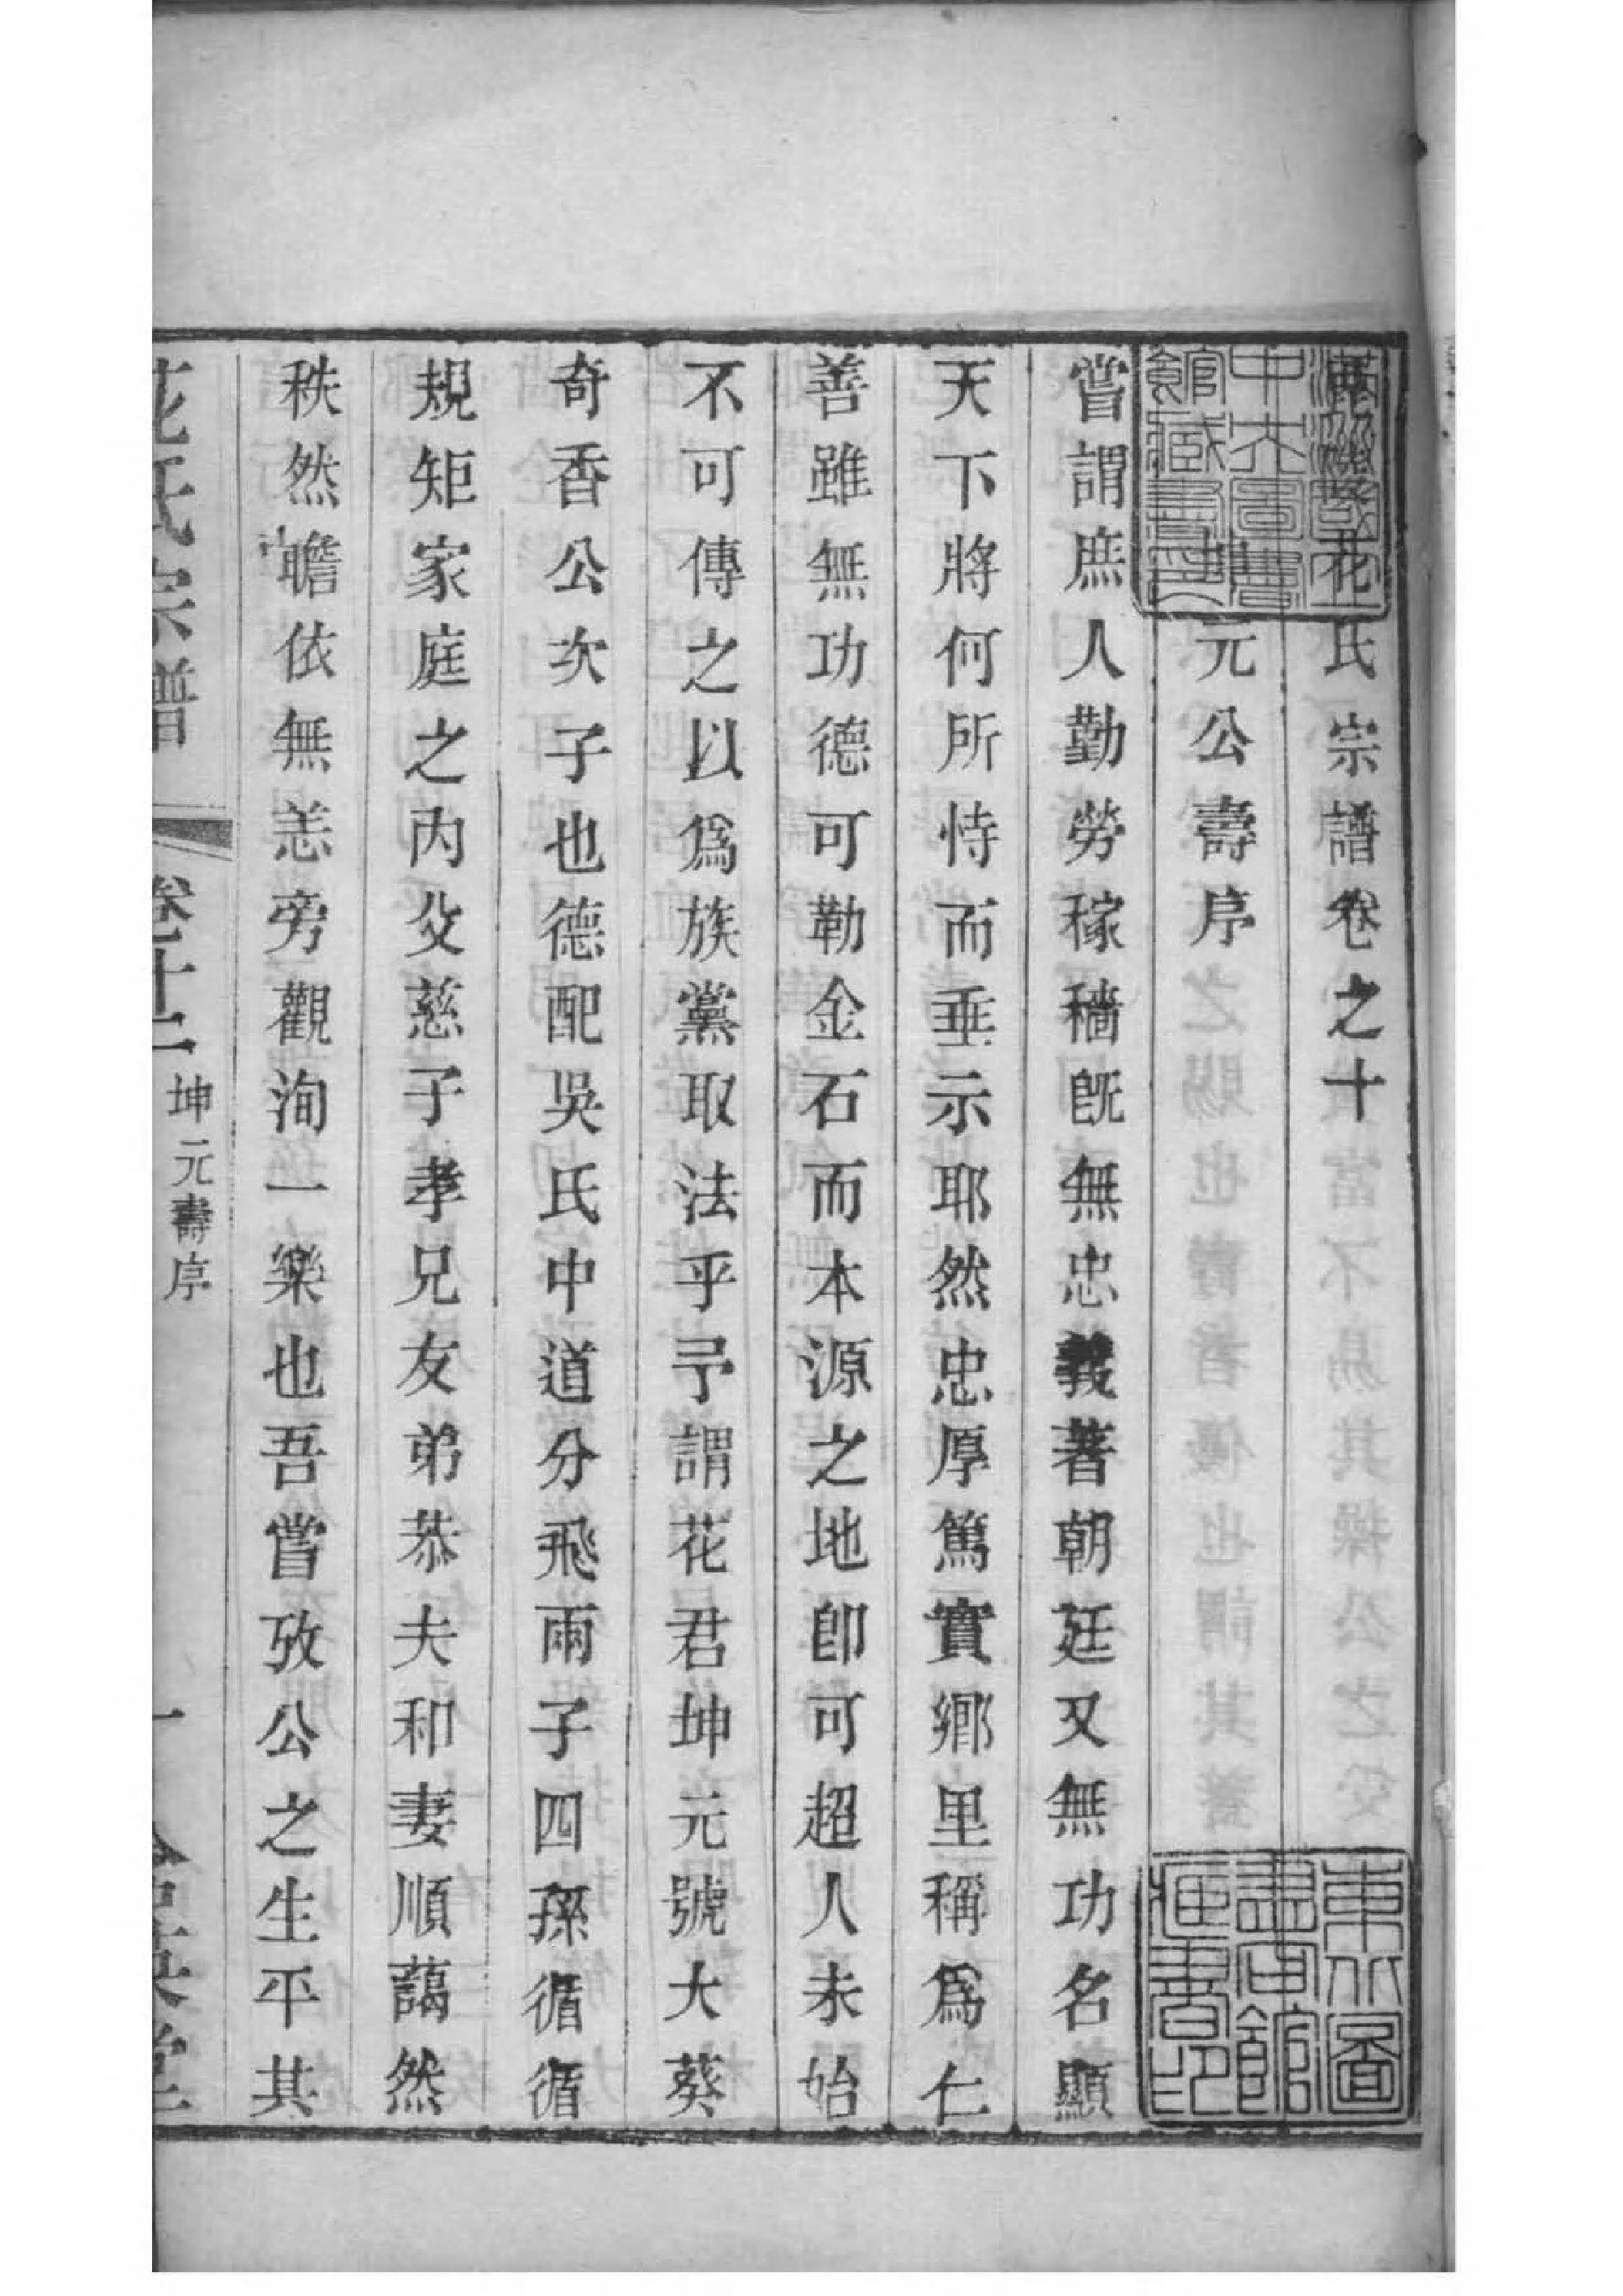 花氏宗譜卷之十
坤元公壽序
嘗謂庶人勤勞稼穡旣無忠義著朝廷又無功名顯
天下將何所恃而垂示耶然忠厚篤實鄉里稱爲仁
善雖無功德可勒金石而本源之地卽可超人未始
不可傳之以爲族黨取法乎予謂花君坤元號大葵
奇香公次子也德配吳氏中道分飛雨子四孫循循
規矩家庭之內父慈子孝兄友弟恭夫和妻順藹然
秩然瞻依無恙旁觀洵一樂也吾嘗攷公之生平其
花氏宗譜
卷十一
坤元壽序
一
滿洲國
中央圖書
館藏書印
東北圖
書館